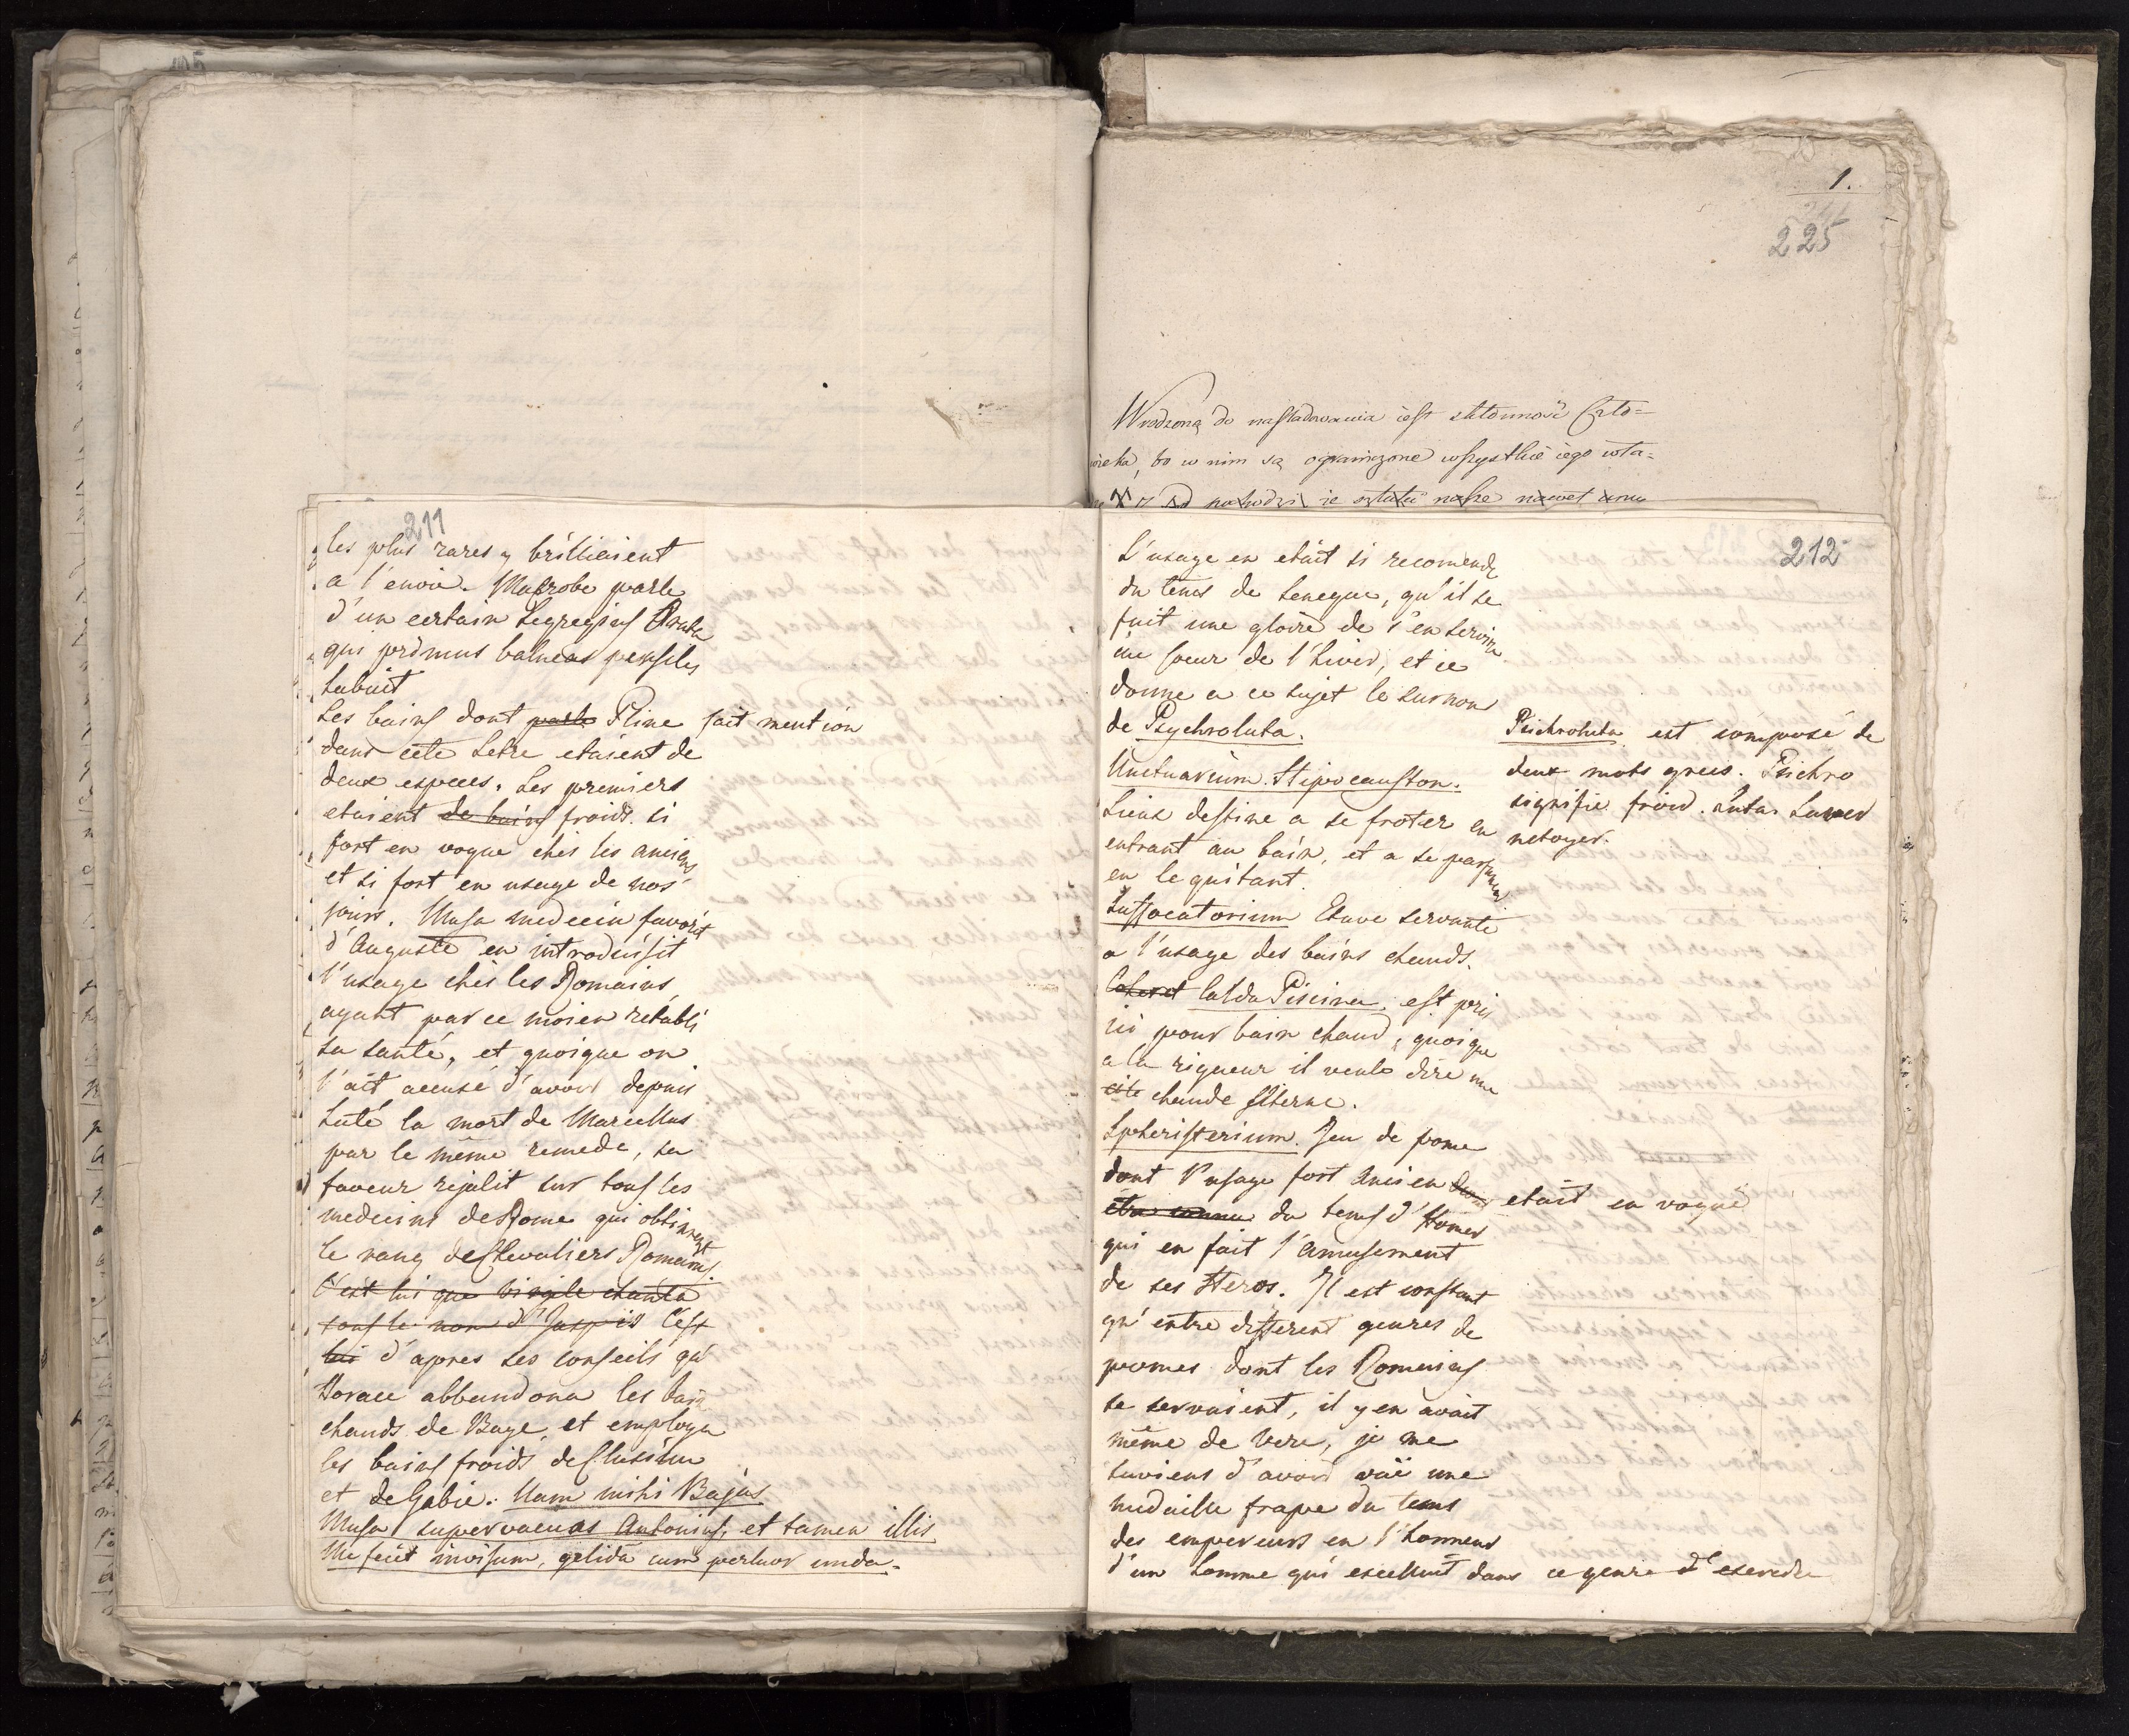 211
les plus rares y brilliaient
a l'envie. Macrobe parle
d'un certain Segregius Orata
qui primus balneas pensiles
habuit
Les bains dont parle Pline fait mention
dans cete Letre etaient de
deux especes. Les premiers
etaient de bains froids si
fort en vogue chés les anciens
et si fort en usage de nos
jours. Musa medecin favorit
d'Auguste en introduisit
l'usage chés les Romains
ayant par ce moien rétabli
sa santé, et quoique on
l'ait accusé d'avoir depuis
haté la mort de Marcellus
par le même remede, sa
faveur rejalit sur tous les
medecins de Rome qui obtinrent
le rang de Chevaliers Romains.
C'est lui que Virgile chanta
sous le nom d'Jaspis C'est
lui d'apres ses conseils qu'
Horace abbandona les bains
chauds de Baye, et employa
les bains froids de Clusium
et de Gabie. Nam mihi Bajas
Musa supervacuas Antonius, et tamen illis
Me facit invisum, gelida cum perluor unda.
1.
225
Wrodzona do nasladowania iest skłonność Czło=
wieka, bo w nim są ograniczone wszystkie iego wła=
212
L'usage en etait si recomendé
du tems de Seneque, qu'il se
fait une gloire de s'en servir
au coeur de l'hiver, et se
donne a ce sujet le surnom
de Psychroluta.
Psichroluta est composé de
deux mots grecs. Psichro
signifie froid. Luta. Laver
netoyer.
Unctuarium. Hipocauston.
Lieux destiné a se froter en
entrant au bain, et a se parfumer
en le quitant.
Suffocatorium Etuve servante
a l'usage des bains chauds.
Calda Piscina. est pris
ici pour bain chaud, quoique
a la rigueur il veule dire une
chaude Citerne.
Spheristerium. Jeu de pome
dont l'usage fort ancien etait en vogue
du tems d'Homer
qui en fait l'amusement
de ses Heros. Il est constant
qu'entre different genres de
pomes dont les Romains
se servaient, il y en avait
même de vere, je me
suviens d'avoir vuë une
medaille frapé du tems
des empereurs en l'honneur
d'un homme qui excellait dans ce genre d'exercice